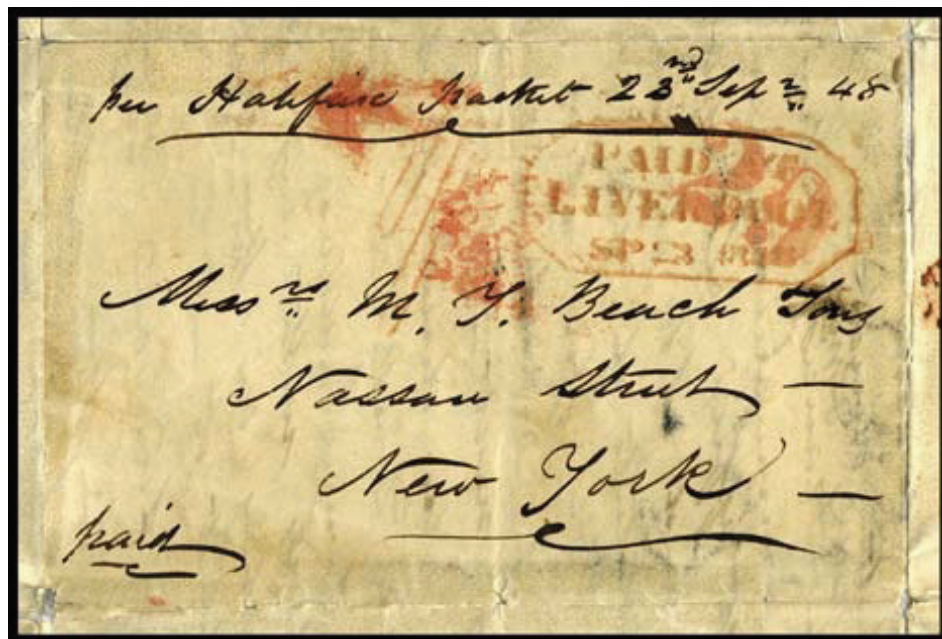 per Halifax Packet 23rd Sepr 48
PAID AT
LIVERPOOL
SP 23 1848
Messrs M. Y. Beach Sons
Nassau Street —
New York —
paid